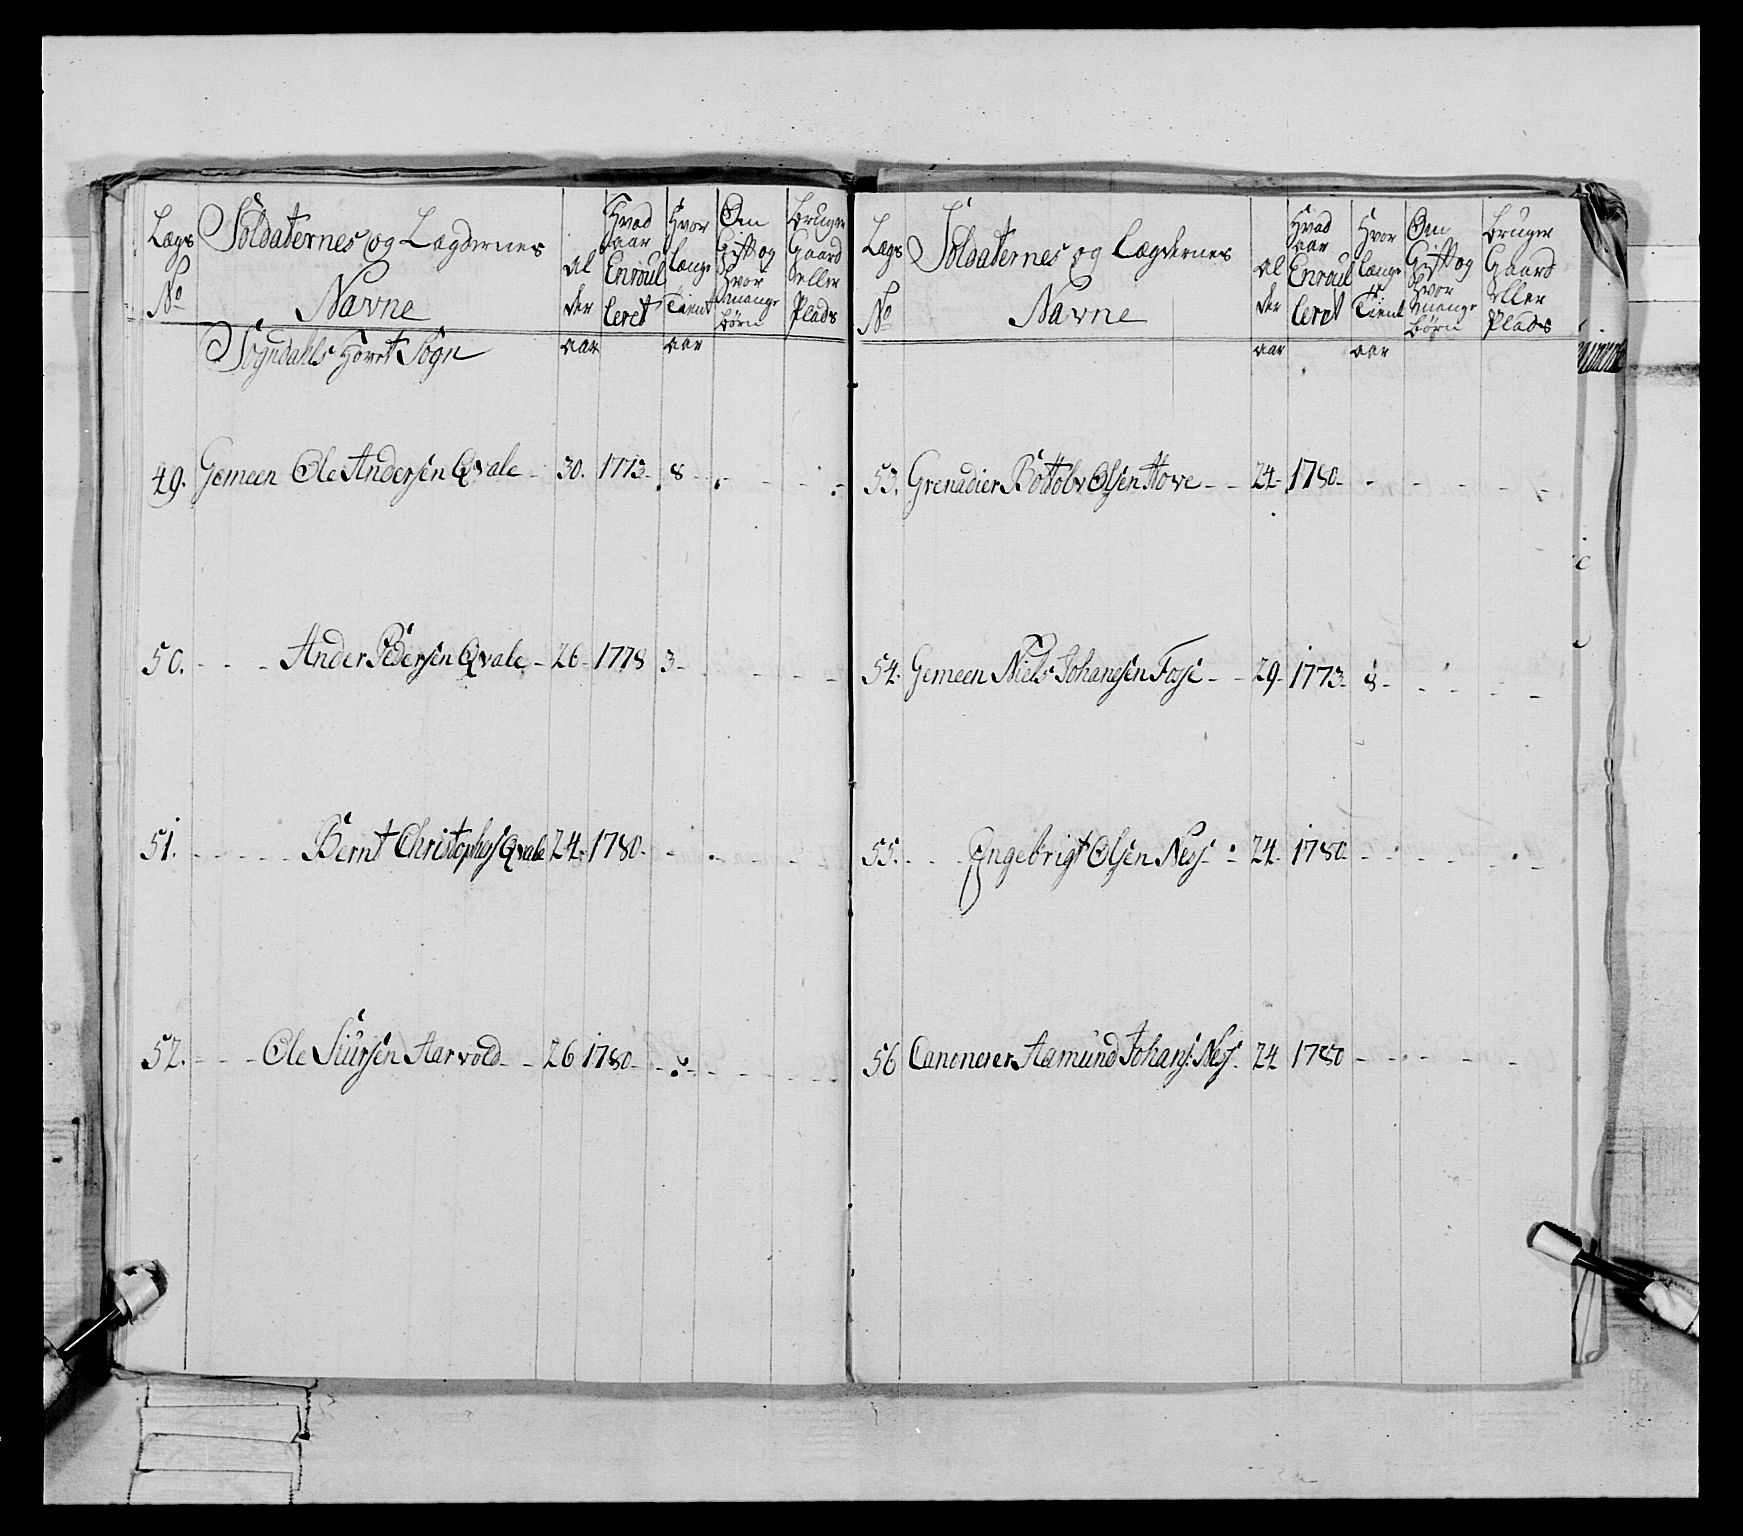 Lægs No
Soldaternes og Lægdernes Navne
Al der
Hvad aar Enroul leret
Hvor længe Tient
Om Gift og Hvor mange børn
bruger Gaard eller Plads
Sogndahls Hovet Sogn
aar aar
49. Gemeen Ole Andersen Qvale - 30. 1773. 8
50. - - - Ander Pedersen Qvale - 26 - 1778 3 -
51. - - - - - Bernt Christophers Qvale 24. 1780.
52. - - - Ole Siursen Aarvold - - 26 1780 - -
Lægs No
Soldaternes og Lægdernes Navne
Al der
Hvad aar Enroul leret
Hvor længe Tient
Om Gift og Hvor mange børn
bruger Gaard eller Plads
aar aar
53. Grenadier Bottolv Olsen Hove - - 24 - 1780 -
54. Gemeen Niels Johansen Fosse - - 29 - 1773 - 8 -
55. - - - Engebrigt Olsen Ness - 24 - 1780 -
56 Canonerer Aamund Johans: Ness - 24 1780 -